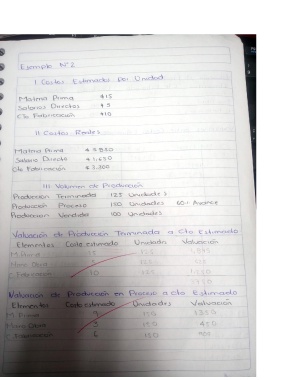 Ejemplo Nº2
I Costos Estimados por Unidad
Materia Prima $15
Salarios Directos $5
Cto Fabricación $10
II Costos Reales
Materia Prima
Salario Directo
Cto Fabricación
III Volumen de Producción
Producción Terminada 125 Unidades
Producción Proceso 150 Unidades 60% Avance
Producción Vendida 100 Unidades
Valuación de Producción Terminada a Cto Estimado
Elementos Costo estimado Unidades Valuación
M. Prima
Mano Obra
C. Fabricación 10
Valuación de Producción en Proceso a Cto Estimado
Elementos Costo estimado Unidades Valuación
M. Prima 9 150 1350
Mano Obra 3 150 450
C. Fabricación 6 150 900